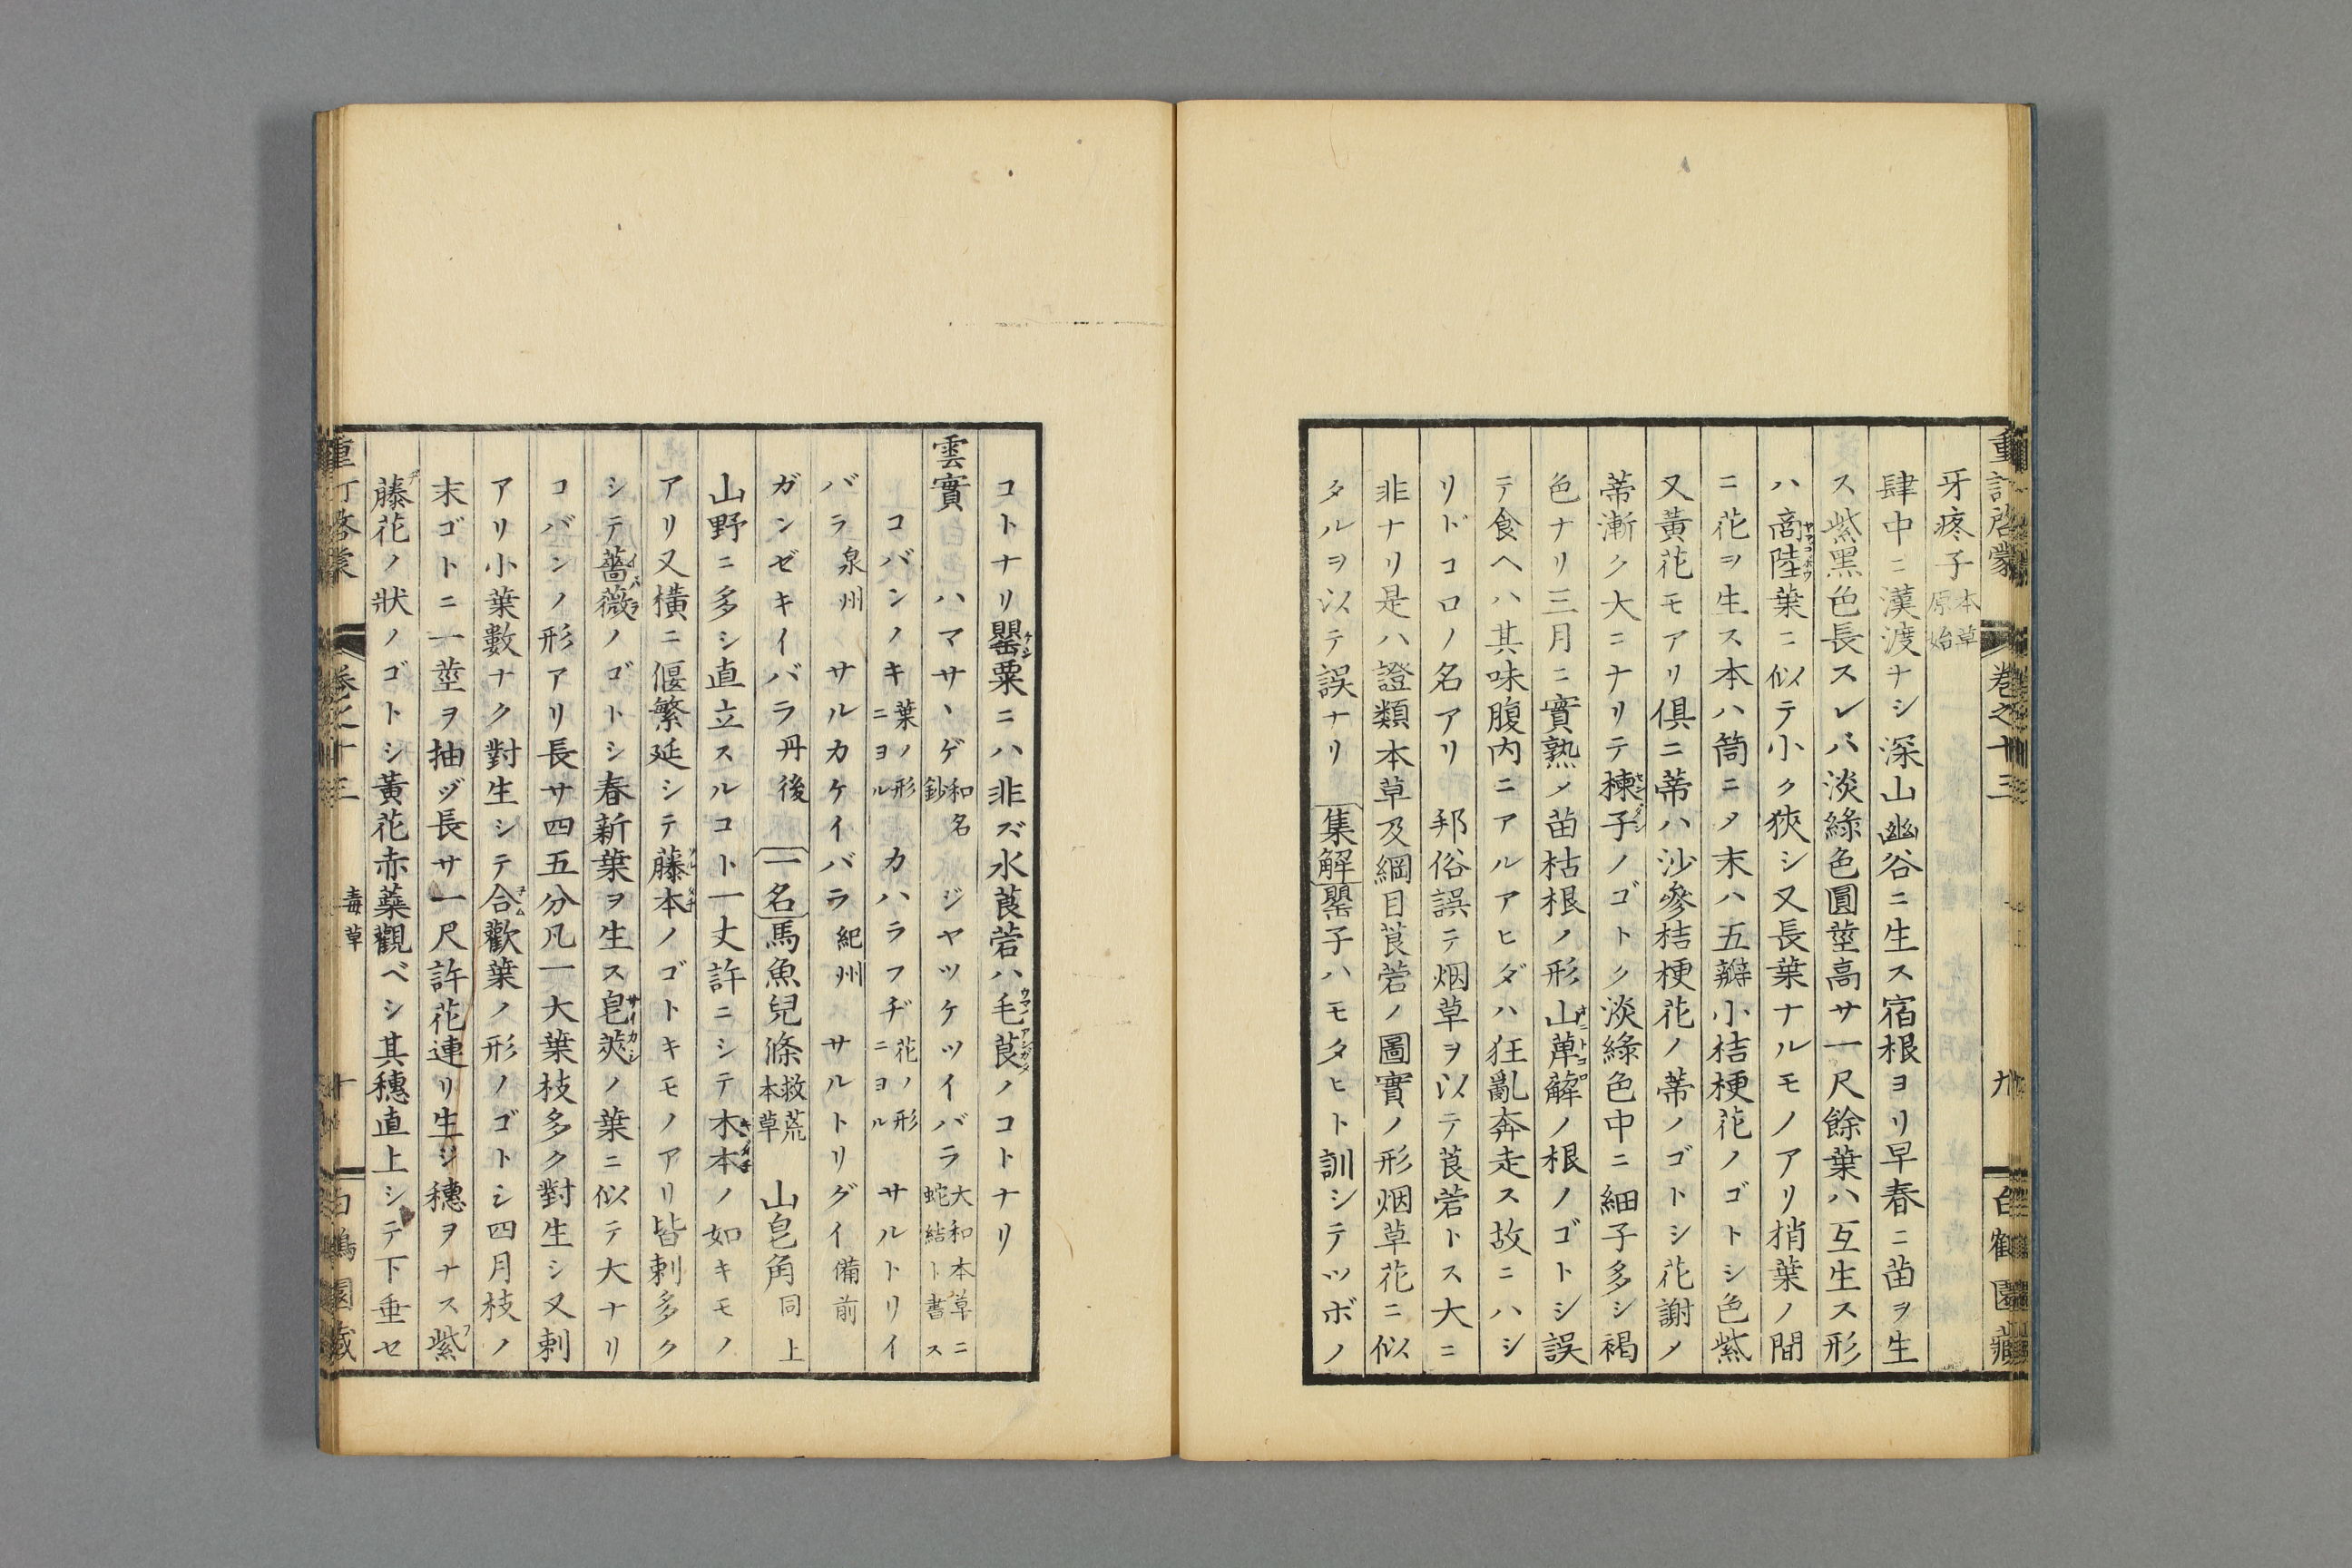 重訂啓蒙 巻之十三 九 白鶴園藏
牙疼子本草原始
肆中ニ漢渡ナシ深山幽谷ニ生ス宿根ヨリ早春ニ苗ヲ生
ス紫黑色長スレバ淡綠色圓莖高サ一尺餘葉ハ互生ス形
ハ商陸ヤマゴボウ葉ニ似テ小ク狹シ又長葉ナルモノアリ梢葉ノ間
ニ花ヲ生ス本ハ筒ニメ末ハ五瓣小桔梗花ノゴトシ色紫
又黃花モアリ倶ニ蒂ハ沙參桔梗花ノ蒂ノゴトシ花謝メ
蒂漸ク大ニナリテ楝子ノゴトク淡綠色中ニ細子多シ褐
色ナリ三月ニ實熟メ苗枯根ノ形山萆薢オニトコロノ根ノゴトシ誤
テ食ヘハ其味腹内ニアルアヒダハ狂亂奔走ス故ニハシ
リドコロノ名アリ 邦俗誤テ烟草ヲ以テ莨菪トス大ニ
非ナリ是ハ證類本草及綱目莨菪ノ圖實ノ形烟草花ニ似
タルヲ以テ誤ナリ 集解罌子ハモタヒト訓シテツボノ
コトナリ罌粟ケシニハ非ズ水莨菪ハ毛莨ウマノアシガタノコトナリ
雲實 ハマサヽゲ和名鈔 ジヤツケツイバラ大和本草ニ蛇結ト書ス
コバンノキ葉ノ形ニヨル カハラフヂ花ノ形ニヨル サルトリイ
バラ泉州 サルカケイバラ紀州 サルトリグイ備前
ガンゼキイバラ丹後 一名馬魚兒條救荒本草 山皂角同上
山野ニ多シ直立スルコト一丈許ニシテ木本ノ如キモノ
アリ又橫ニ偃繁延シテ藤本ノゴトキモノアリ皆刺多ク
シテ薔薇イバラノゴトシ春新葉ヲ生ス皂莢サイカシノ葉ニ似テ大ナリ
コバンノ形アリ長サ四五分凡一大葉枝多ク對生シ又刺
アリ小葉數ナク對生シテ合歡ネム葉ノ形ノゴトシ四月枝ノ
末ゴトニ一莖ヲ抽ヅ長サ一尺許花連リ生ジ穗ヲナス紫フ
藤ヂ花ノ狀ノゴトシ黃花赤蘂觀ベシ其穗直上シテ下垂セ
重訂啓蒙 巻之十三 毒草 十 白鶴園藏